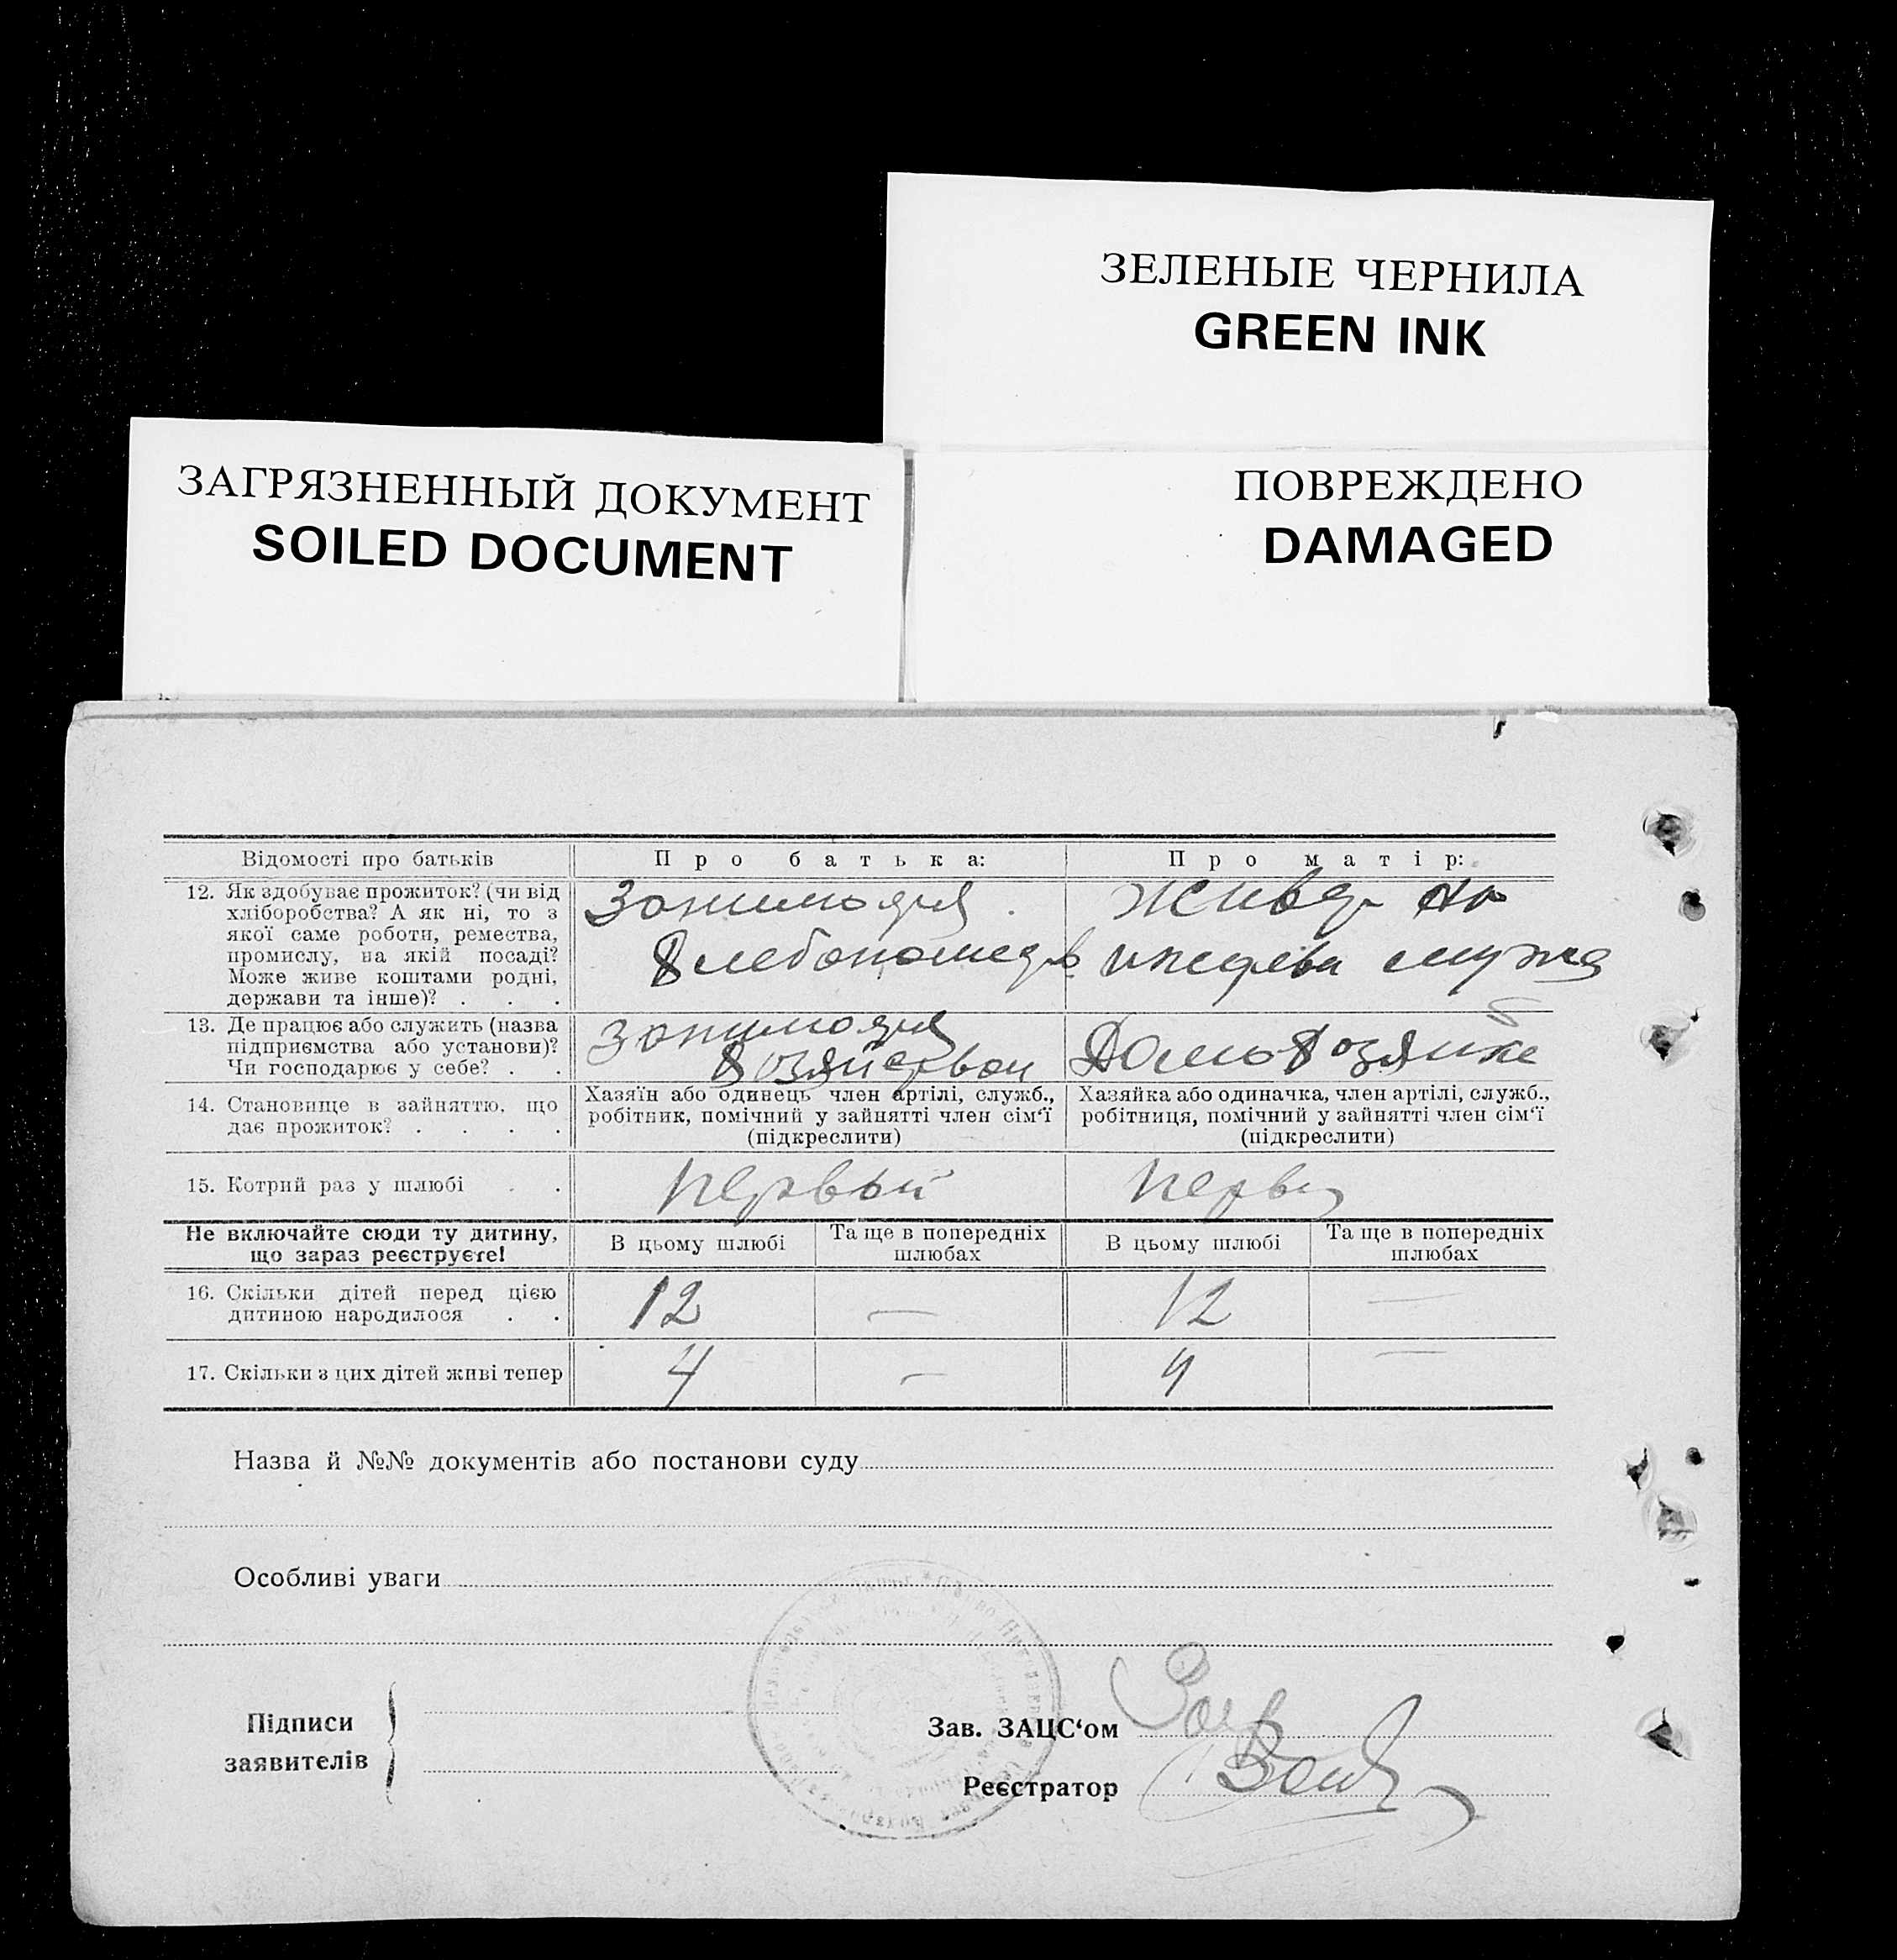 ЗЕЛЕНЫЕ ЧЕРНИЛА
GREEN INK
ЗАГРЯЗНЕННЫЙ ДОКУМЕНТ
SOILED DOCUMENT
ПОВРЕЖДЕНО
DAMAGED
Відомості про батьків
Про батька:
Про матір:
12. Як здобуває прожиток? (чи від
хліборобства? А як ні, то з
якої саме роботи, ремества,
промислу, на якій посаді?
Може живе коштами родні,
держави та інше)? . . .
мужа
13. Де працює або служить (назва
підприємства або установи)?
Чи господарює у себе? . .
14. Становище в зайняттю, що
дає прожиток? . . . .
Хазяїн або одинець член артілі, служб.,
робітник, помічний у зайнятті член сім‘ї
(підкреслити)
Хазяйка або одиначка, член артілі, служб.,
робітниця, помічний у зайнятті член сім‘ї
(підкреслити)
15. Котрий раз у шлюбі . .
первый
Не включайте сюди ту дитину,
що зараз реєструєте!
В цьому шлюбі
Та ще в попередніх
шлюбах
В цьому шлюбі
Та ще в попередніх
шлюбах
16. Скільки дітей перед цією
дитиною народилося . .
12
—
12
—
17. Скільки з цих дітей живі тепер
4
—
4
—
Назва й №№ документів або постанови суду
Особливі уваги
Підписи
заявителів
Зав. ЗАЦС‘ом
Реєстратор